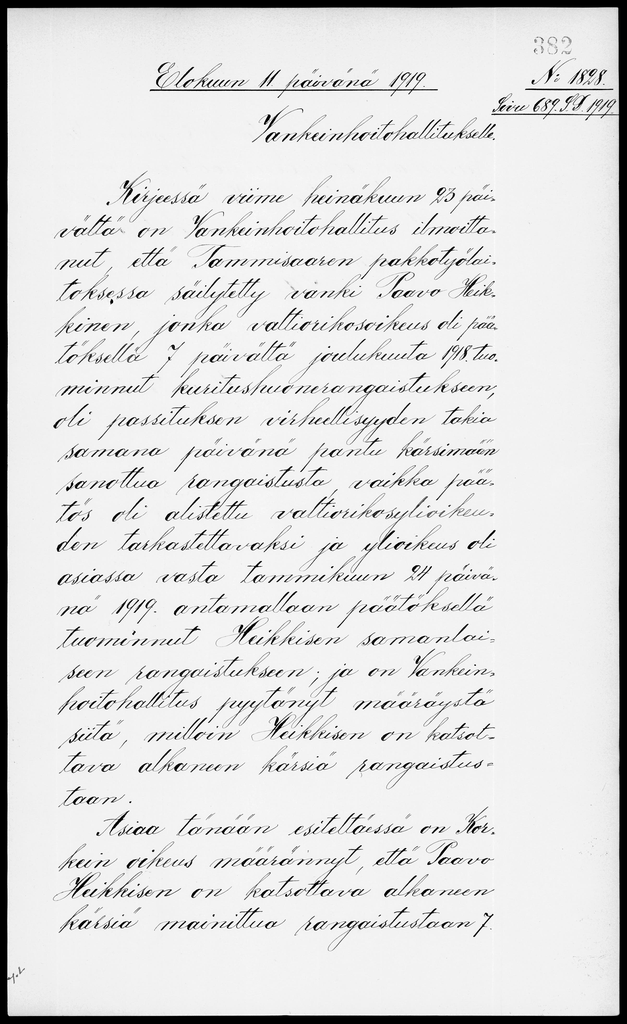 382
Elokuun 11 päivänä 1919.
No 1828.
Sivu 689. S.D. 1919.
Vankeinhoitohallitukselle.
Kirjeessä viime heinäkuun 23 päi-
vältä on Vankeinhoitohallitus ilmoitta-
nut, että Tammisaaren pakkotyölai-
toksessa säilytetty vanki Paavo Heik-
kinen, jonka valtiorikosoikeus oli pää-
töksellä 7 päivältä joulukuuta 1918 tuo-
minnut kuritushuonerangaistukseen,
oli passituksen virheellisyyden takia
samana päivänä pantu kärsimään
sanottua rangaistusta, vaikka pää-
tös oli alistettu valtiorikosylioikeu-
den tarkastettavaksi ja ylioikeus oli
asiassa vasta tammikuun 24 päivä-
nä 1919. antamallaan päätöksellä
tuominnut Heikkisen samanlai-
seen rangaistukseen; ja on Vankein-
hoitohallitus pyytänyt määräystä
siitä, milloin Heikkisen on katsot-
tava alkaneen kärsiä rangaistus-
taan.
Asiaa tänään esiteltäessä on Kor-
kein oikeus määrännyt, että Paavo
Heikkisen on katsottava alkaneen
kärsiä mainittua rangaistustaan 7.